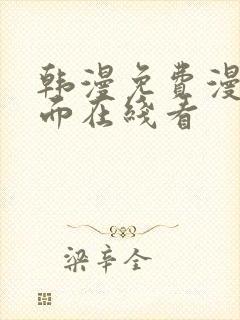 韩漫免费漫
而在线看
梁辛全